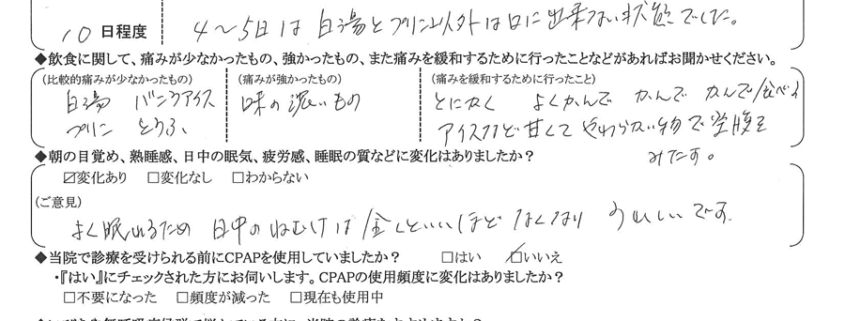 10 日程度 4～5日は白湯とプリン以外は口に出来ない状態でした。
◆飲食に関して、痛みが少なかったもの、強かったもの、また痛みを緩和するために行ったことなどがあればお聞かせください。
(比較的痛みが少なかったもの) (痛みが強かったもの) (痛みを緩和するために行ったこと)
白湯 バニラアイス 味の濃いもの とにかく よくかんで かんで かんで食べる
プリン とうふ、 アイスなど甘くてやわらかい物で空腹を
みたす。
◆朝の目覚め、熟睡感、日中の眠気、疲労感、睡眠の質などに変化はありましたか?
☑変化あり □変化なし □わからない
(ご意見)
よく眠れるため 日中のねむけは全くといいほどなくなり うれしいです。
◆当院で診療を受けられる前にCPAPを使用していましたか? □はい ☑いいえ
・『はい』にチェックされた方にお伺いします。CPAPの使用頻度に変化はありましたか?
□不要になった □頻度が減った □現在も使用中